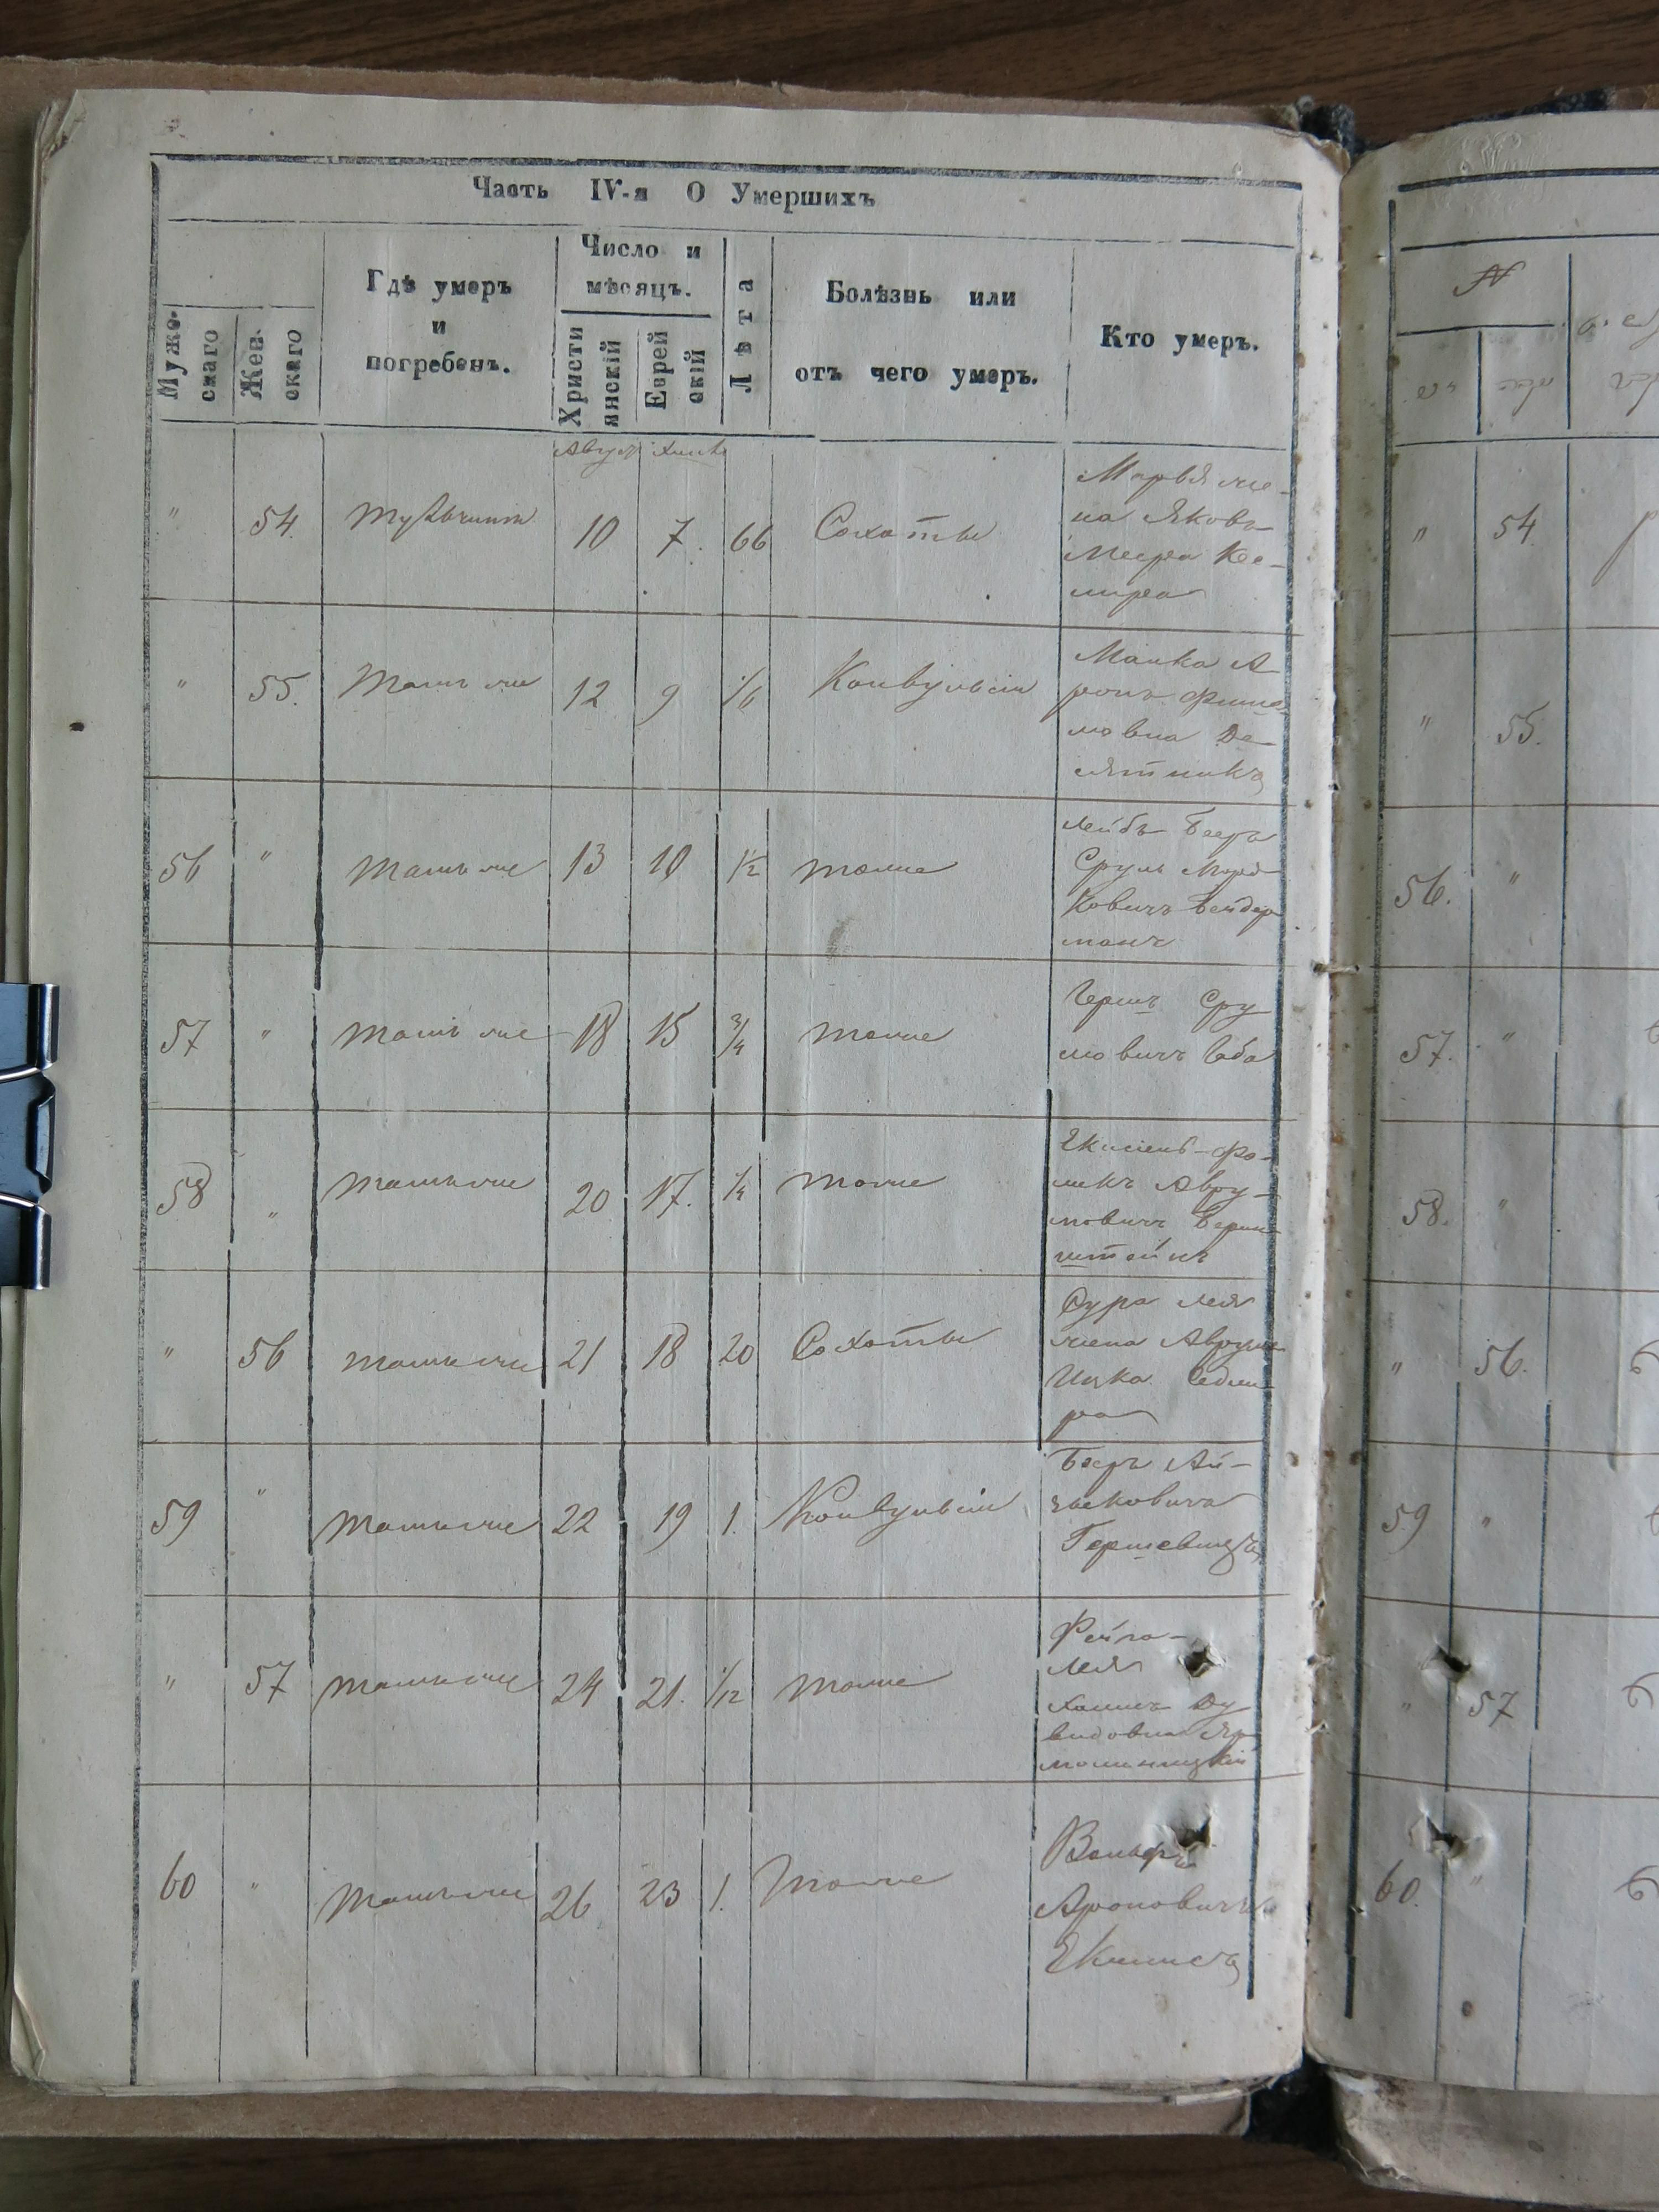 Часть IV-я О Умершихъ
Муже-
скаго
Жен-
скаго
Гдѣ умеръ
и
погребенъ.
Число и
мѣсяцъ.
Христи
янскій
Еврей
скій
Лѣта
Болѣзнь или
отъ чего умеръ.
Кто умеръ.
Август
" 54. Тульчинъ 10 7. 66 Сохоты
Марья же-
на Яковъ
" 55. тамъ же 12 9 1/6 Конвульсіи
Манка А
ронъ
мовна Де
сятникъ
56 " тамъ же 13 10 1/2 тоже
Лейбъ Беръ
Сруль Морд
ковичъ Бендер
манъ
57 " тамъ же 18 15 3/4 тоже
Гершъ Сру
ловичъ
58 " тамъ же 20 17. 1/4 тоже
Авру-
мовичъ Берин
штейнъ
" 56 тамъ же 21 18 20 Сохоты
Сура Лея
жена Аврума
Ицка
ра
59 " тамъ же 22 19 1. Конвульсіи
Беръ Ай-
зыковичъ
Гершевицъ
" 57 тамъ же 24 21. 1/12 тоже
Лея
Ду
видовна Яр
молинецкій
60 " тамъ же 26 23 1. тоже
Вольфъ
Ароновичъ
№
" 54.
" 55.
56. "
57. "
58. "
" 56.
59 "
" 57
60. "